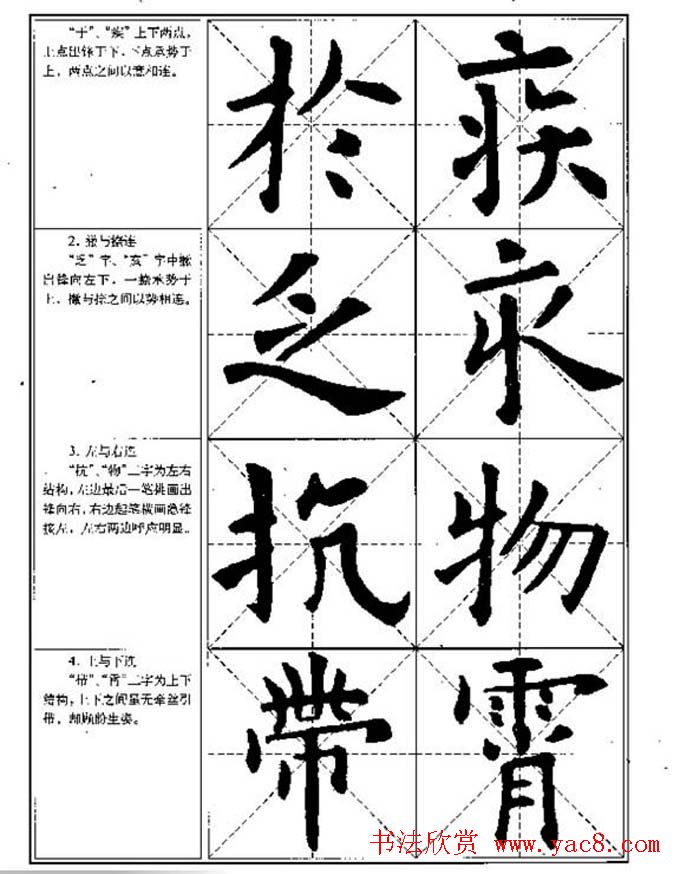 “于”、“疾”上下两点，
上点出锋于下、下点承势于
上，两点之间以意相连。
於 疾
2. 撇与捺连
“乏”字、字中撇
出锋向左下，一捺承势于
上，撇与捺之间以势相连。
乏
3. 左与右连
“抗”、“物”二字为左右
结构，左边最后一笔挑画出
锋向右，右边起笔横画隐锋
接左，左右两边呼应明显。
抗 物
4. 上与下连
“带”、“霄”二字为上下
结构，上下之间虽无牵丝引
带，却顾盼生姿。
帶 霄
书法欣赏 www.yac8.com